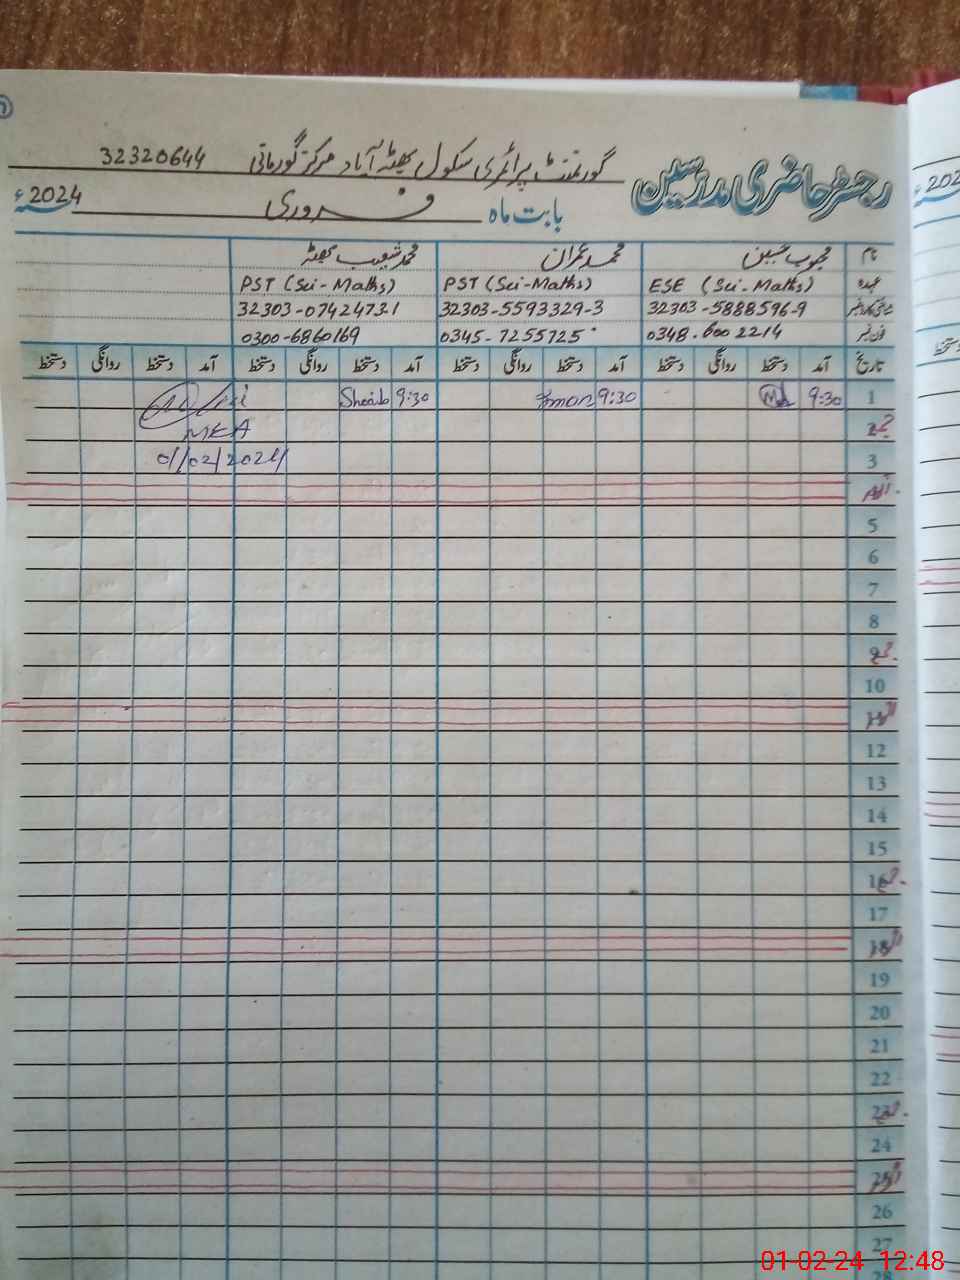 رجسٹر حاضری مدرسین گورنمنٹ پرائمری سکول بھٹہ آباد مرکز گورمانی 32320644
بابت ماہ فروری 2024ء
نام محبوب حسین محمد عمران محمد شعیب بھٹہ
عہدہ ESE (Sci-Maths) PST (Sci-Maths) PST (Sci-Maths)
شناختی کارڈ نمبر 32303-5888596-9 32303-5593329-3 32303-0742473-1
فون نمبر 0348-6002214 0345-7255725 0300-6860169
تاریخ آمد دستخط روانگی دستخط آمد دستخط روانگی دستخط آمد دستخط روانگی دستخط آمد دستخط روانگی دستخط
1 9:30 9:30 Imran 9:30 Shoaib
2 MEA
3 01/02/2024
اتوار
5
6
7
8
9
10
11
12
13
14
15
16
17
18
19
20
21
22
23
24
25
26
27
28
202
دستخط
01-02-24 12:48